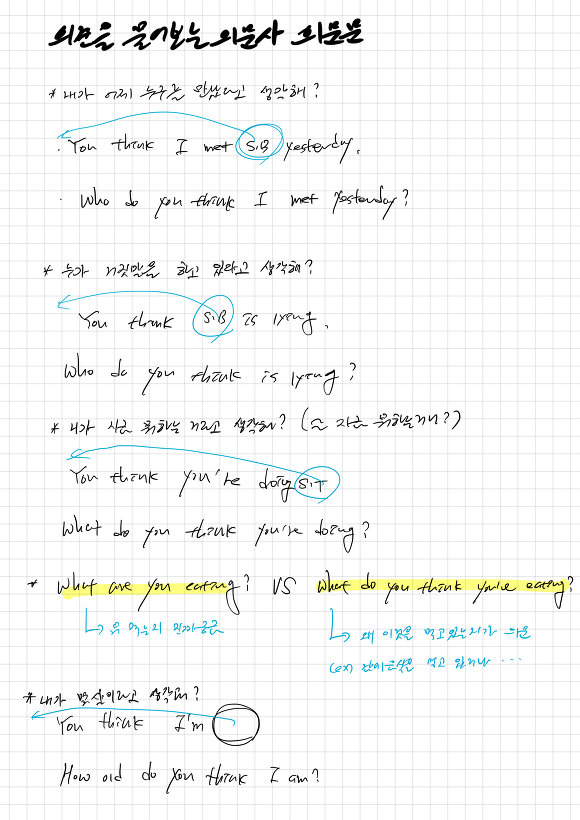 의견을 물어보는 의문사 의문문
* 내가 어제 누구를 만났다고 생각해?
· You think I met S.B yesterday.
· Who do you think I met yesterday?
* 누가 거짓말을 하고 있다고 생각해?
You think S.B is lyeng.
Who do you think is lyeng?
* 니가 지금 뭐하는 거라고 생각해? ( 지금 뭐하는거니?)
You think you're doing S.T
What do you think you're doing?
* What are you eating? VS What do you think you're eating?
↳ 뭐 먹는지 인가 궁금
↳ 왜 이것을 먹고있는지가 의문
(ex) 먹고 있거나 ...
* 내가 몇살이라고 생각해?
You think I'm
How old do you think I am?